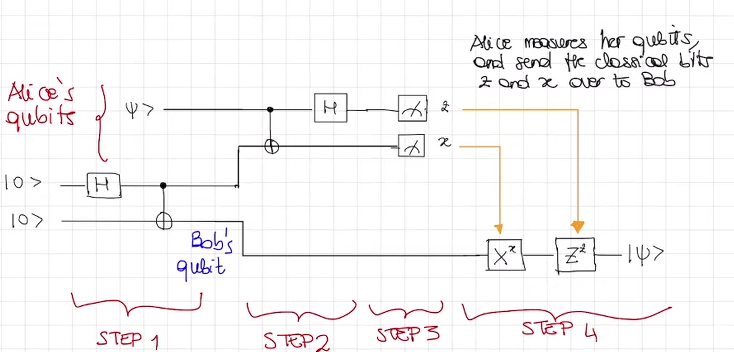 Alice measures her qubits,
and send the classical bits
z and x over to Bob
Alice's
qubits
ψ>
H
z
x
|0>
H
|0>
Bob's
qubit
X^x
Z^z
|ψ>
STEP 1
STEP 2
STEP 3
STEP 4